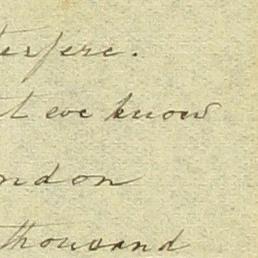 terfere.
t we know
ndon
thousand